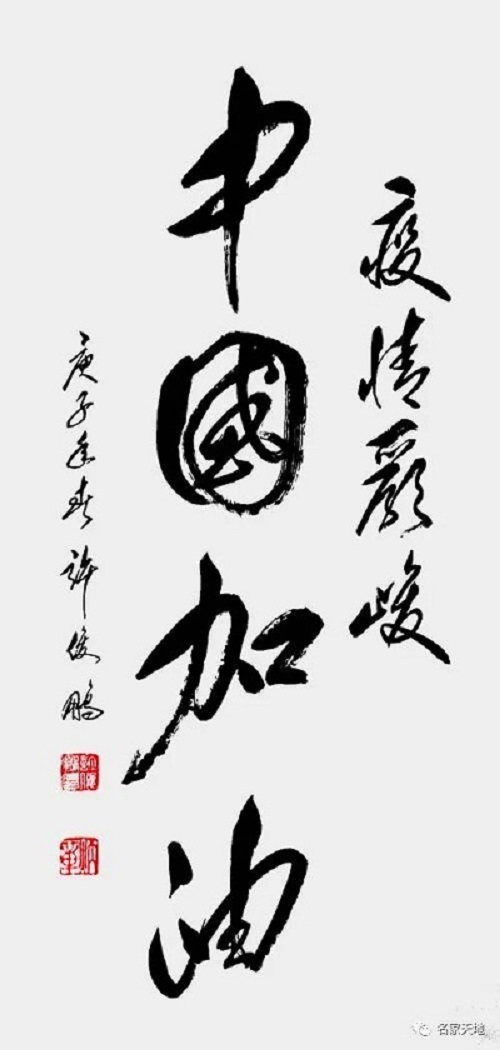 疫情嚴峻
中國加油
庚子年春許俊鵬
名家天地